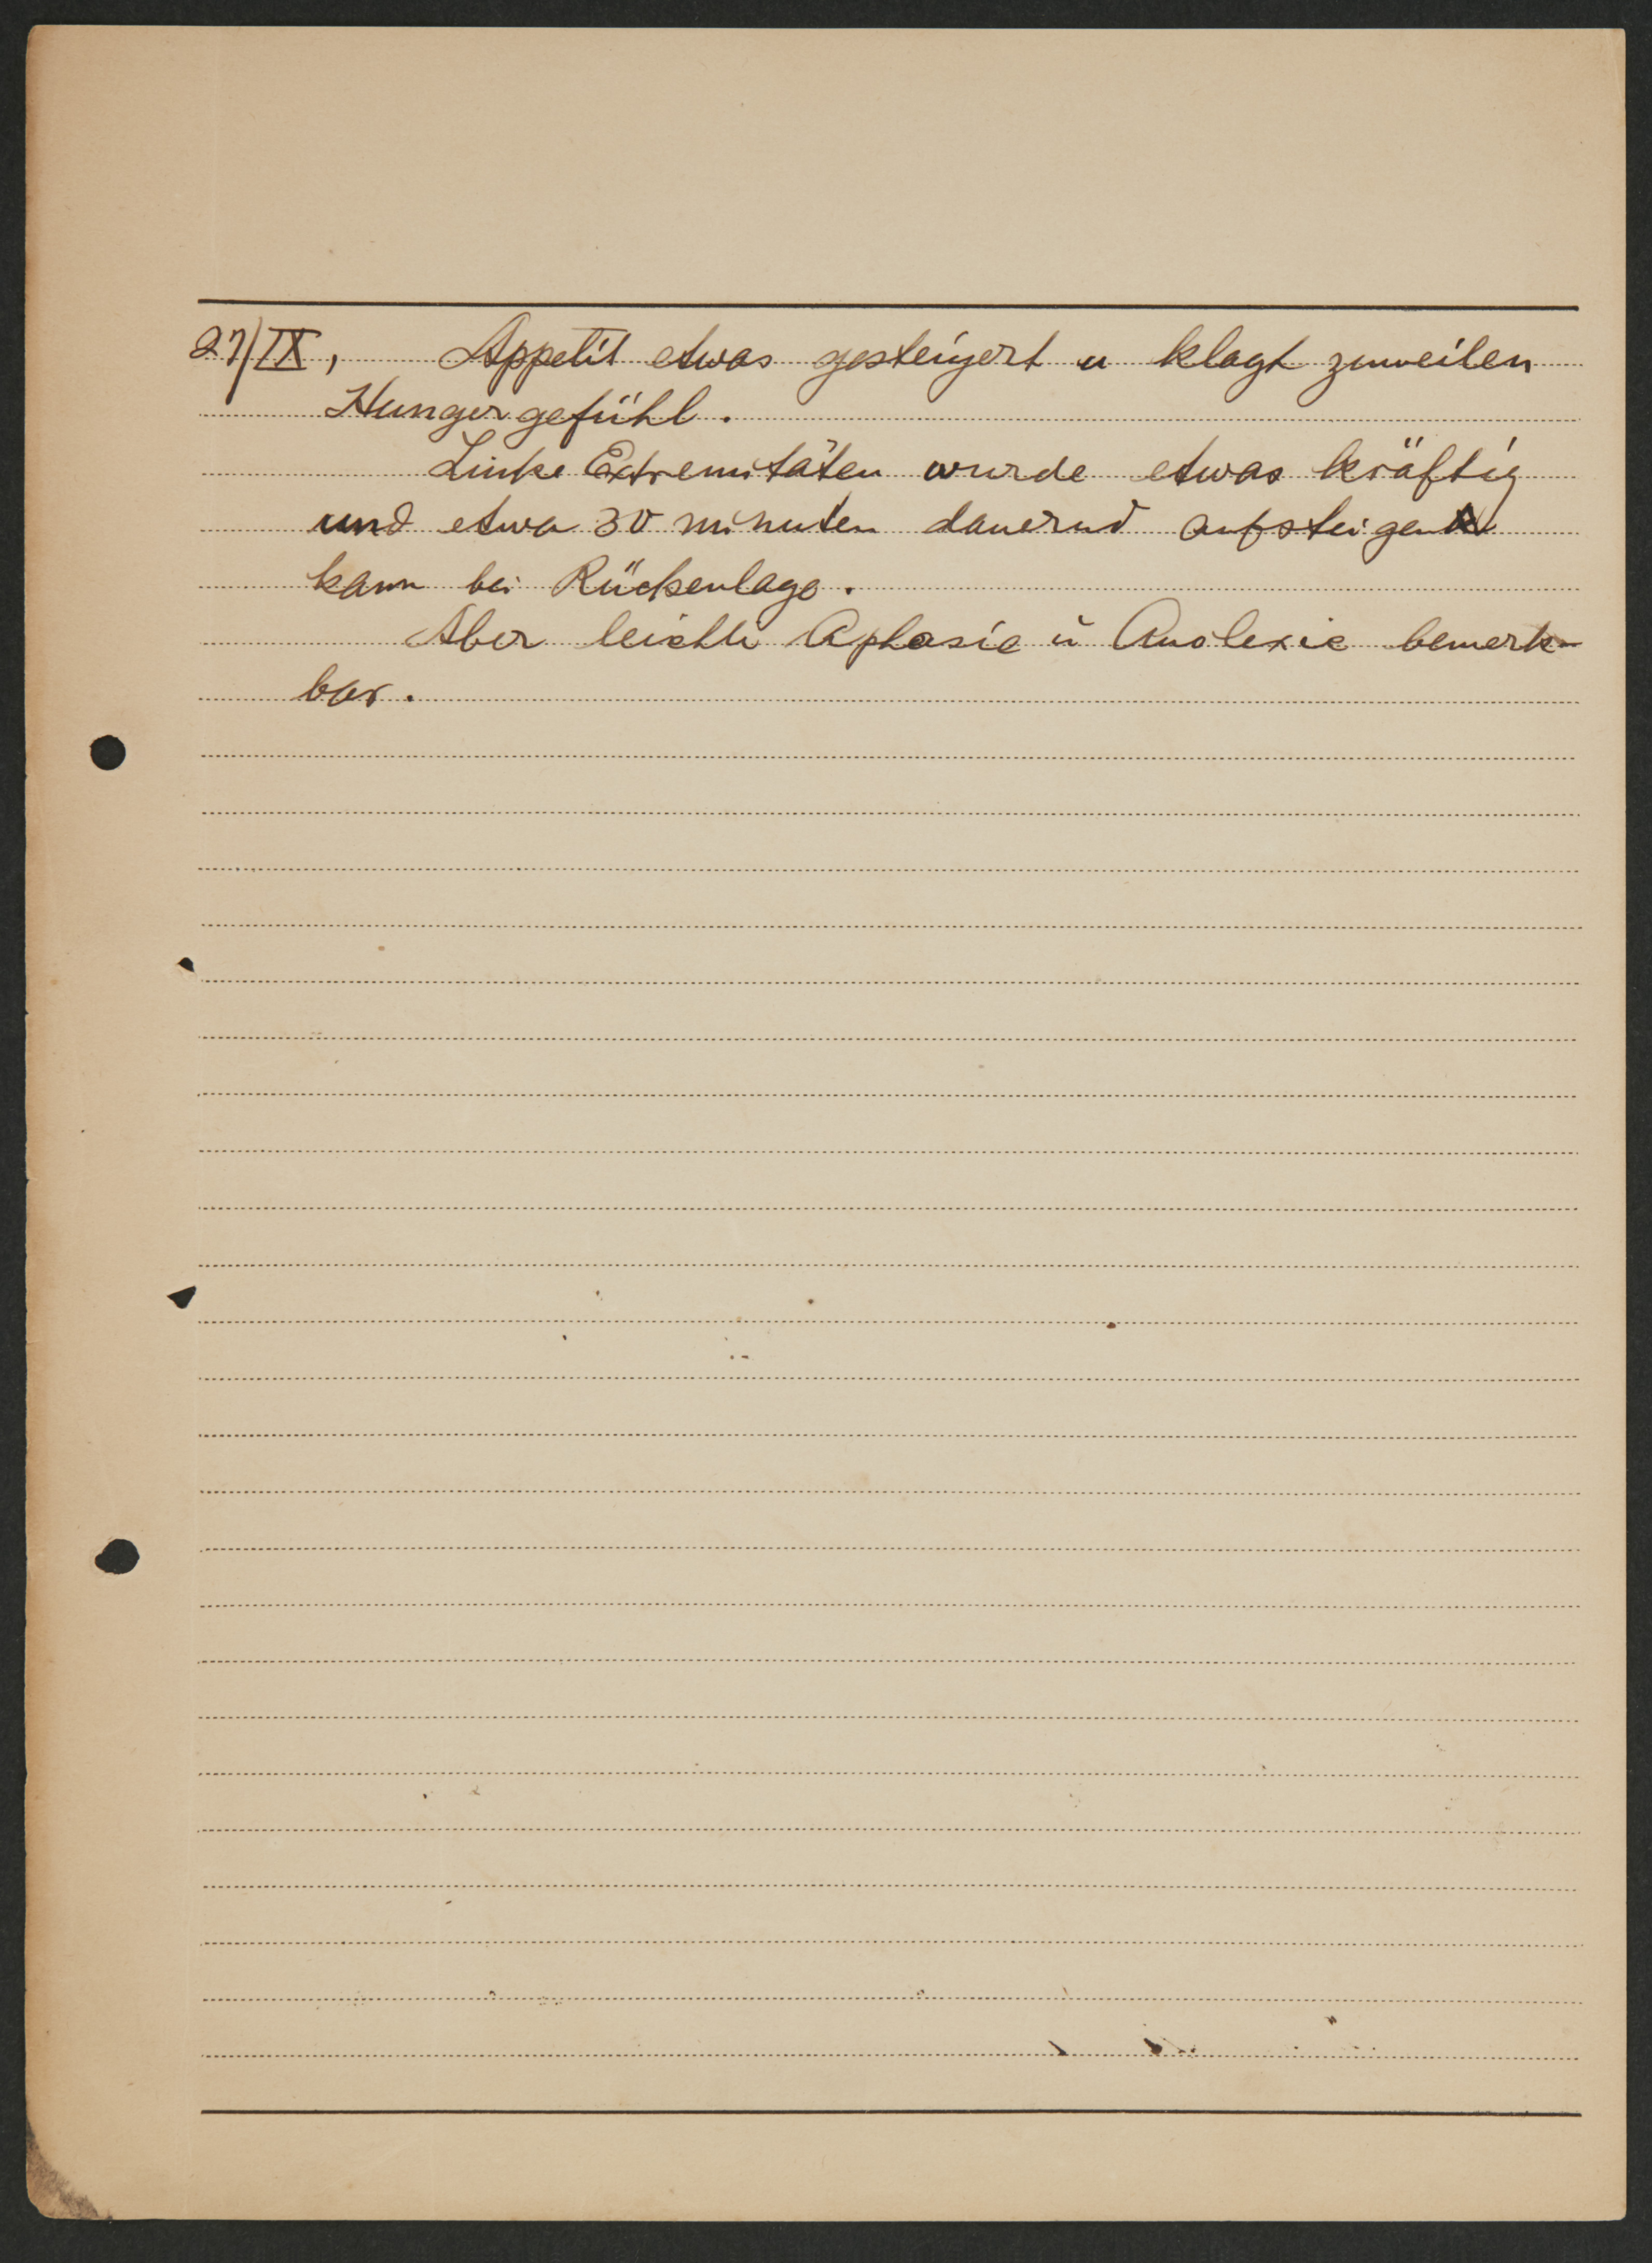 27/IX, Appetit etwas gesteigert u klagt zuweilen
Hungergefühl.
Linke Extremitäten wurde etwas kräftig
und etwa 30 minuten dauernd aufsteigen
kann bei Rückenlage.
Aber leichte Aphasie ü Anolexie bemerk-
bar.